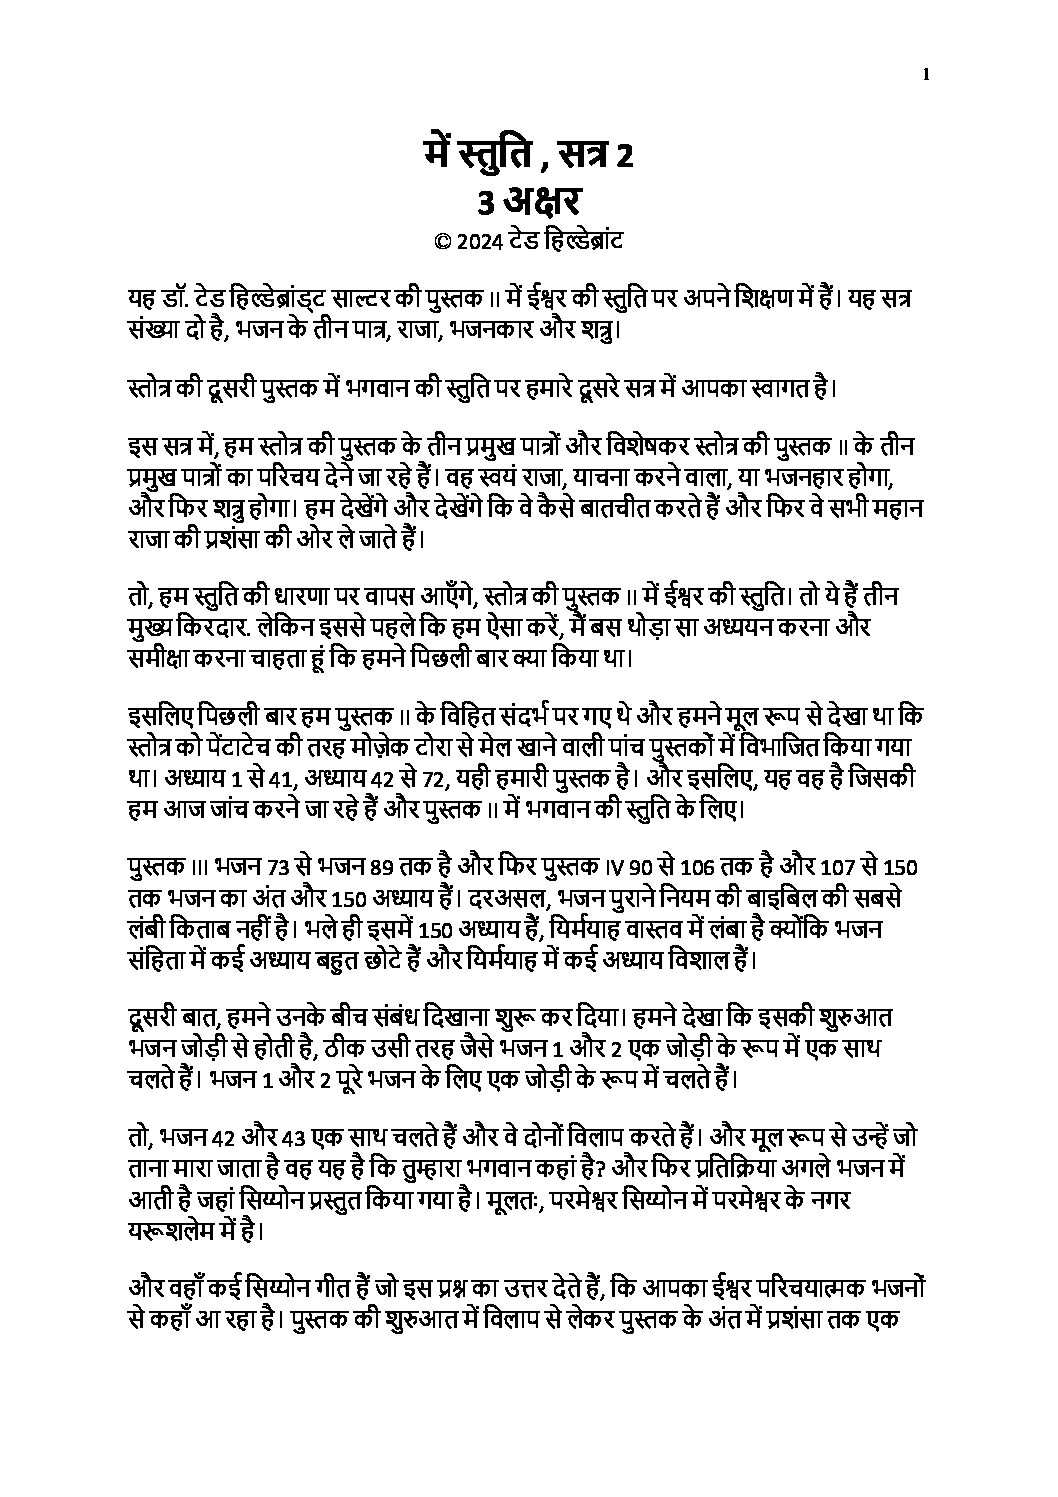 1
में स्तुति , सत्र 2
3 अक्षर
© 2024 टेड हिल्डेब्रांट
यह डॉ. टेड हिल्डेब्रांड्ट साल्टर की पुस्तक II में ईश्वर की स्तुति पर अपने शिक्षण में हैं। यह सत्र
संख्या दो है, भजन के तीन पात्र, राजा, भजनकार और शत्रु।
स्तोत्र की दूसरी पुस्तक में भगवान की स्तुति पर हमारे दूसरे सत्र में आपका स्वागत है।
इस सत्र में, हम स्तोत्र की पुस्तक के तीन प्रमुख पात्रों और विशेषकर स्तोत्र की पुस्तक II के तीन
प्रमुख पात्रों का परिचय देने जा रहे हैं। वह स्वयं राजा, याचना करने वाला, या भजनहार होगा,
और फिर शत्रु होगा। हम देखेंगे और देखेंगे कि वे कैसे बातचीत करते हैं और फिर वे सभी महान
राजा की प्रशंसा की ओर ले जाते हैं।
तो, हम स्तुति की धारणा पर वापस आएँगे, स्तोत्र की पुस्तक II में ईश्वर की स्तुति। तो ये हैं तीन
मुख्य किरदार. लेकिन इससे पहले कि हम ऐसा करें, मैं बस थोड़ा सा अध्ययन करना और
समीक्षा करना चाहता हूं कि हमने पिछली बार क्या किया था।
इसलिए पिछली बार हम पुस्तक II के विहित संदर्भ पर गए थे और हमने मूल रूप से देखा था कि
स्तोत्र को पेंटाटेच की तरह मोज़ेक टोरा से मेल खाने वाली पांच पुस्तकों में विभाजित किया गया
था। अध्याय 1 से 41, अध्याय 42 से 72, यही हमारी पुस्तक है। और इसलिए, यह वह है जिसकी
हम आज जांच करने जा रहे हैं और पुस्तक II में भगवान की स्तुति के लिए।
पुस्तक III भजन 73 से भजन 89 तक है और फिर पुस्तक IV 90 से 106 तक है और 107 से 150
तक भजन का अंत और 150 अध्याय हैं। दरअसल, भजन पुराने नियम की बाइबिल की सबसे
लंबी किताब नहीं है। भले ही इसमें 150 अध्याय हैं, यिर्मयाह वास्तव में लंबा है क्योंकि भजन
संहिता में कई अध्याय बहुत छोटे हैं और यिर्मयाह में कई अध्याय विशाल हैं।
दूसरी बात, हमने उनके बीच संबंध दिखाना शुरू कर दिया। हमने देखा कि इसकी शुरुआत
भजन जोड़ी से होती है, ठीक उसी तरह जैसे भजन 1 और 2 एक जोड़ी के रूप में एक साथ
चलते हैं। भजन 1 और 2 पूरे भजन के लिए एक जोड़ी के रूप में चलते हैं।
तो, भजन 42 और 43 एक साथ चलते हैं और वे दोनों विलाप करते हैं। और मूल रूप से उन्हें जो
ताना मारा जाता है वह यह है कि तुम्हारा भगवान कहां है? और फिर प्रतिक्रिया अगले भजन में
आती है जहां सिय्योन प्रस्तुत किया गया है। मूलतः, परमेश्वर सिय्योन में परमेश्वर के नगर
यरूशलेम में है।
और वहाँ कई सिय्योन गीत हैं जो इस प्रश्न का उत्तर देते हैं, कि आपका ईश्वर परिचयात्मक भजनों
से कहाँ आ रहा है। पुस्तक की शुरुआत में विलाप से लेकर पुस्तक के अंत में प्रशंसा तक एक